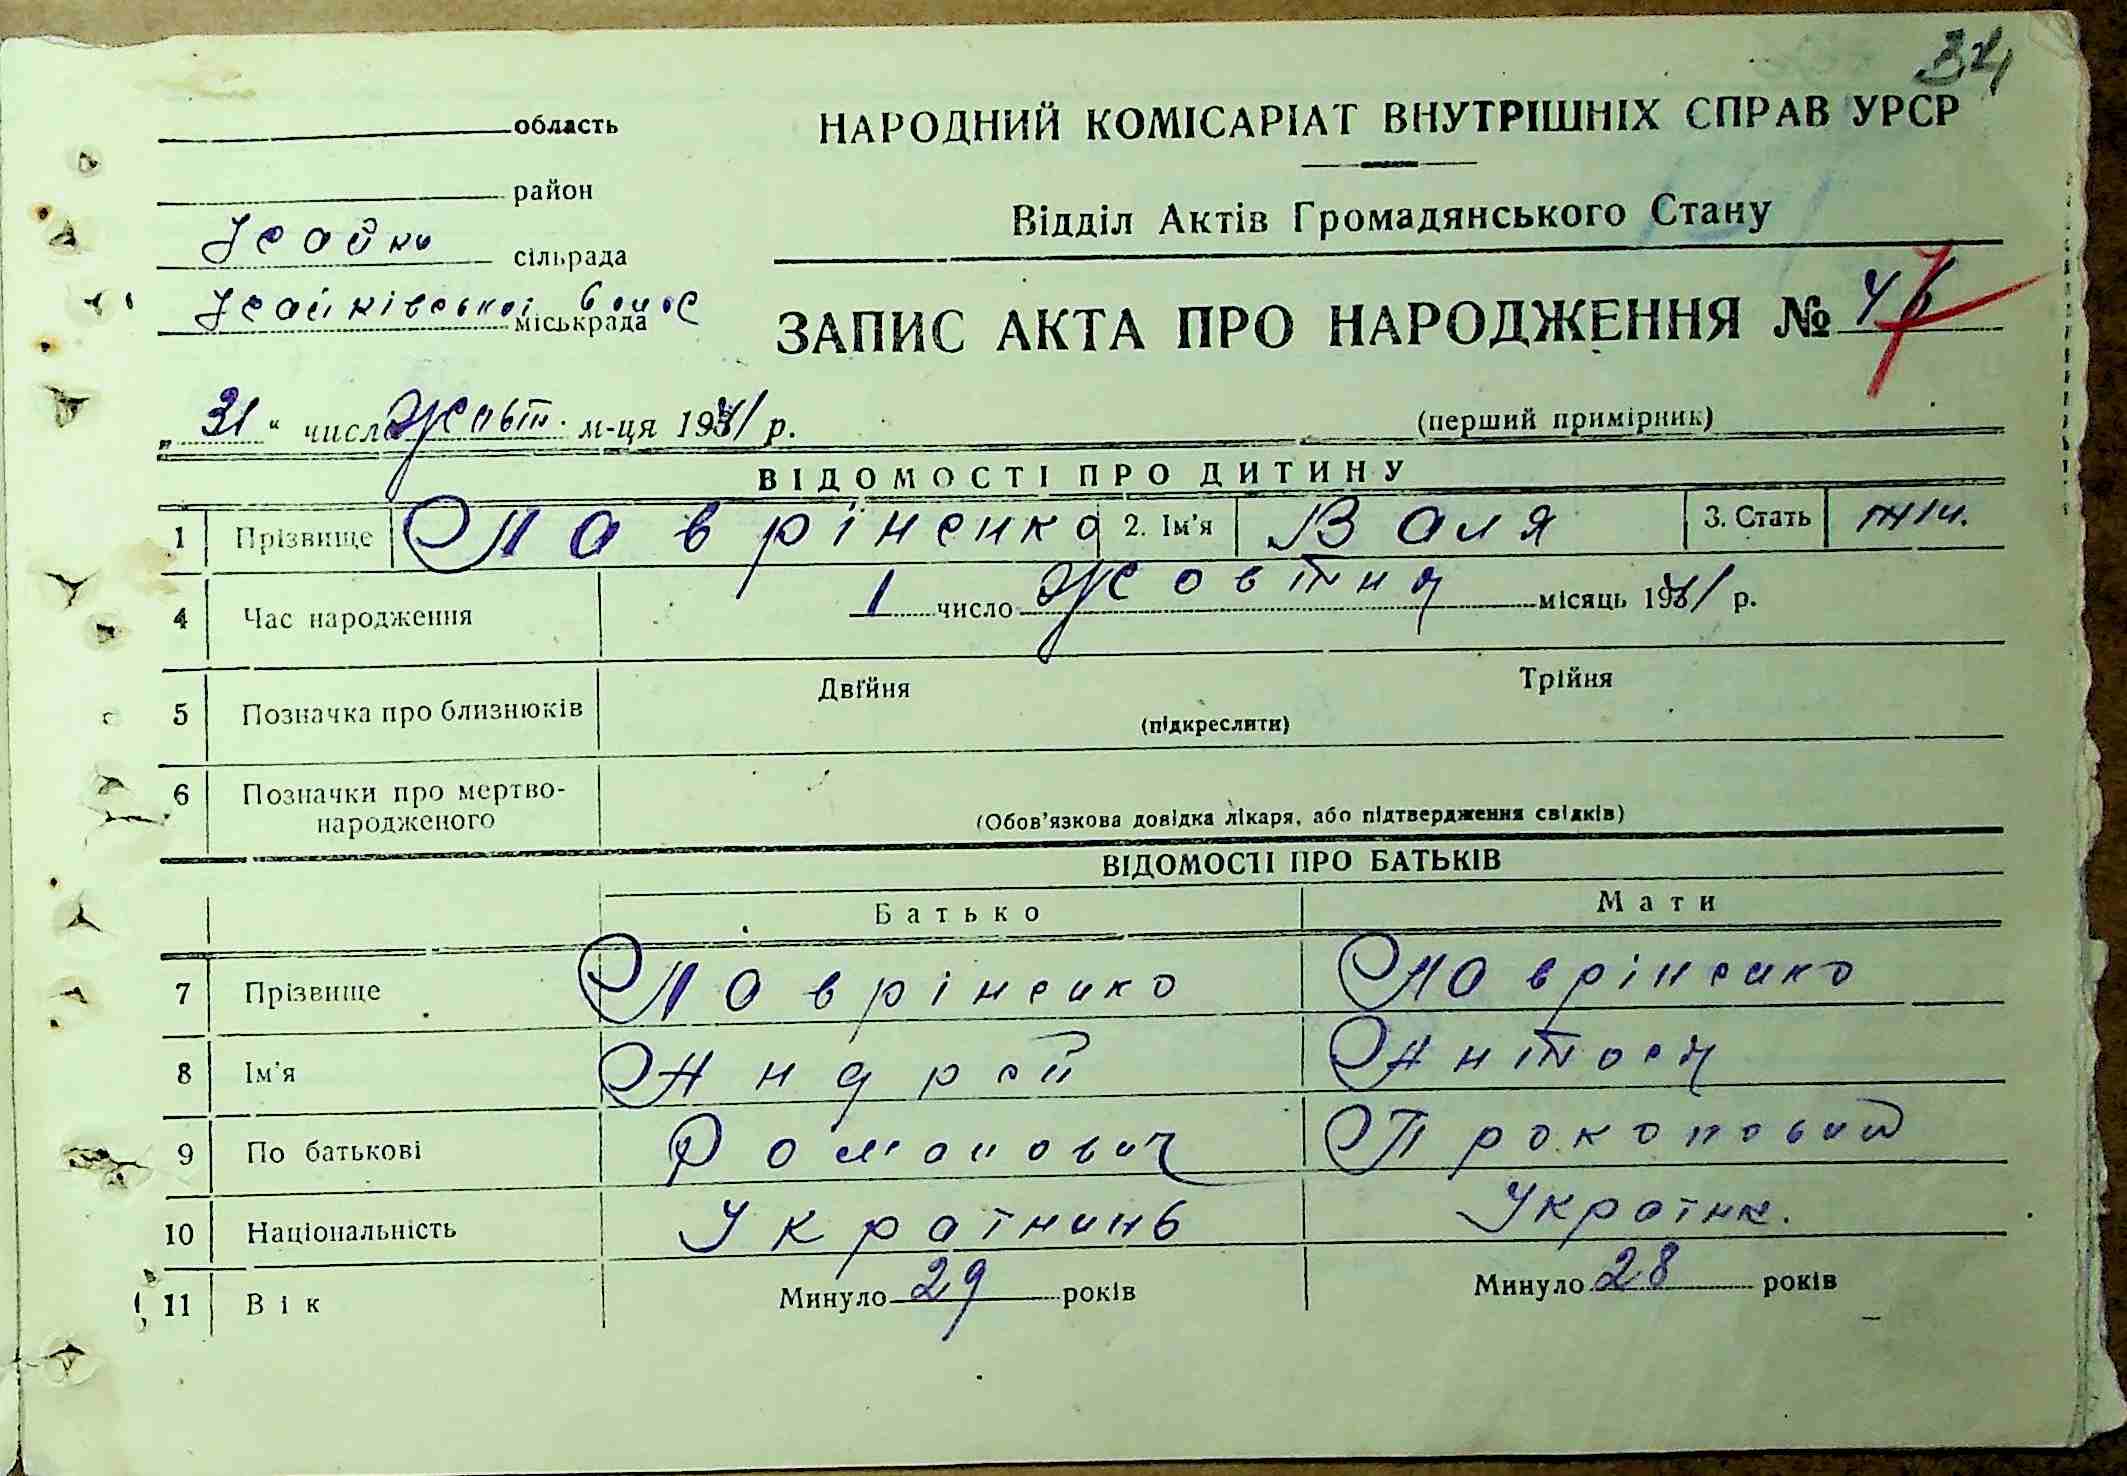 34
область
НАРОДНИЙ КОМІСАРІАТ ВНУТРІШНІХ СПРАВ УРСР
район
Відділ Актів Громадянського Стану
Ісайки сільрада
Ісайківської міськрада
ЗАПИС АКТА ПРО НАРОДЖЕННЯ №
„31“ число Жовт. м-ця 1941 р.
(перший примірник)
ВІДОМОСТІ ПРО ДИТИНУ
1 Прізвище Лавріненко 2. Ім'я Валя 3. Стать жін.
4 Час народження 1 число Жовтня місяць 1941 р.
5 Позначка про близнюків Двійня Трійня
(підкреслити)
6 Позначки про мертво-
народженого (Обов'язкова довідка лікаря, або підтвердження свідків)
ВІДОМОСТІ ПРО БАТЬКІВ
Батько Мати
7 Прізвище Лавріненко Лавріненко
8 Ім'я Андрей Антося
9 По батькові Романович
10 Національність Українинь Україн.
11 Вік Минуло 29 років Минуло 28 років